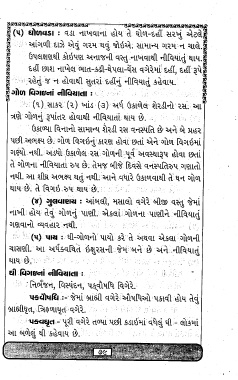 (૫) ઘોલવડા : વડા નાખવાના હોય તે ઘોળ-દહીં સરખું એટલે
આંગળી દાઝે એવું ગરમ થવું જોઈએ. સામાન્ય ગરમ ન ચાલે.
ઉપલક્ષણથી કોઈપણ અનાજની વસ્તુ નાખવાથી નીવિયાતું થાય.
દહીં છાશ નાખેલ ભાત-કઢી-થેપલા-વેસ વગેરેમાં દહીં, દહીં રૂપે
રહેતું જ ન હોવાથી સુતરાં દહીંનું નીવિયાતું કહેવાય.
ગોળ વિગઈનાં નીવિયાતા :
(૧) સાકર (૨) ખાંડ (૩) અર્ધ ઉકાળેલ શેરડીનો રસ. આ
ત્રણે ગોળનું રૂપાંતર હોવાથી નીવિયાતાં થાય છે.
ઉકાળ્યા વિનાનો સામાન્ય શેરડી રસ વનસ્પતિ છે અને બે પ્રહર
પછી અભક્ષ્ય છે. ગોળ વિગઈનું કારણ હોવા છતાં એને ગોળ વિગઈમાં
ગણ્યો નથી. અડધો ઉકાળેલ રસ ગોળની પૂર્વ અવસ્થારૂપ હોવા છતાં
તે ગોળના નીવિયાતા રૂપ છે. તેમજ બીજે દિવસે વનસ્પતિરૂપ ગણાતો
નથી. આ શીઘ્ર અભક્ષ્ય થતું નથી. આને વધારે ઉકાળવાથી તે ઘન ગોળ
થાય છે. તે વિગઈ રૂપ થાય છે.
(૪) ગુલવાણય : આંબલી, મસાલો વગેરે બીજી વસ્તુ જેમાં
નાખી હોય તેવું ગોળનું પાણી. એકલાં ગોળના પાણીને નીવિયાતું
ગણવાનો વ્યવહાર નથી.
(૫) પાય : ઘી-ગોળનો પાયો કરે તે અથવા એકલા ગોળની
ચાસણી. આ અર્ધક્વથિત ઇક્ષુરસની જેમ બને છે અને નીવિયાતું
થાય છે.
ઘી વિગઈનાં નીવિયાતા :
નિર્ભંજન, વિસ્પંદન, પક્વૌષધિ વગેરે.
પક્વૌષધિ :- જેમાં બ્રાહ્મી વગેરે ઔષધિઓ પકાવી હોય તેવું
બ્રાહ્મીઘૃત, ત્રિફળાઘૃત વગેરે.
પક્વઘૃત - પૂરી વગેરે તળ્યા પછી કડાઈમાં વધેલું ઘી - લોકમાં
આ બળેલું ઘી કહેવાય છે.